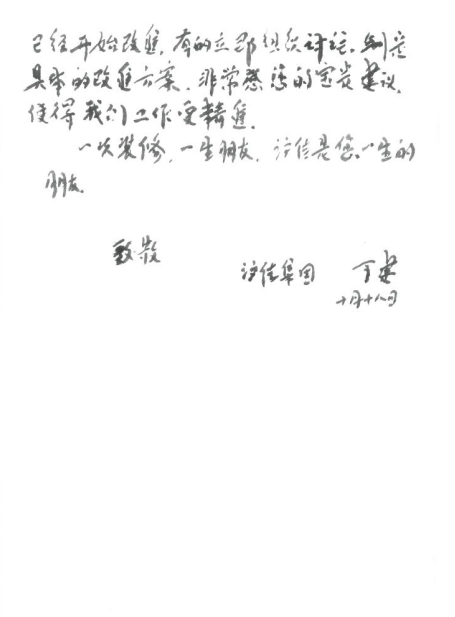 已经开始改進，有的立即组织讨论，制定
具体的改進方案，非常感谢您的宝贵建议，
使得我们工作更精進。
一次装修，一生朋友，沪佳是您一生的
朋友。
致敬
沪佳集团 丁建
十月十八日